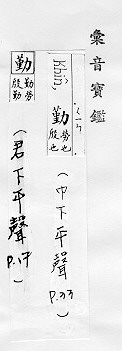 彙音寶鑑
Khîn,
勤 勞也 殷也
(巾下平聲 P.33)
勤 勤勞 殷勤
(君下平聲 P.17)